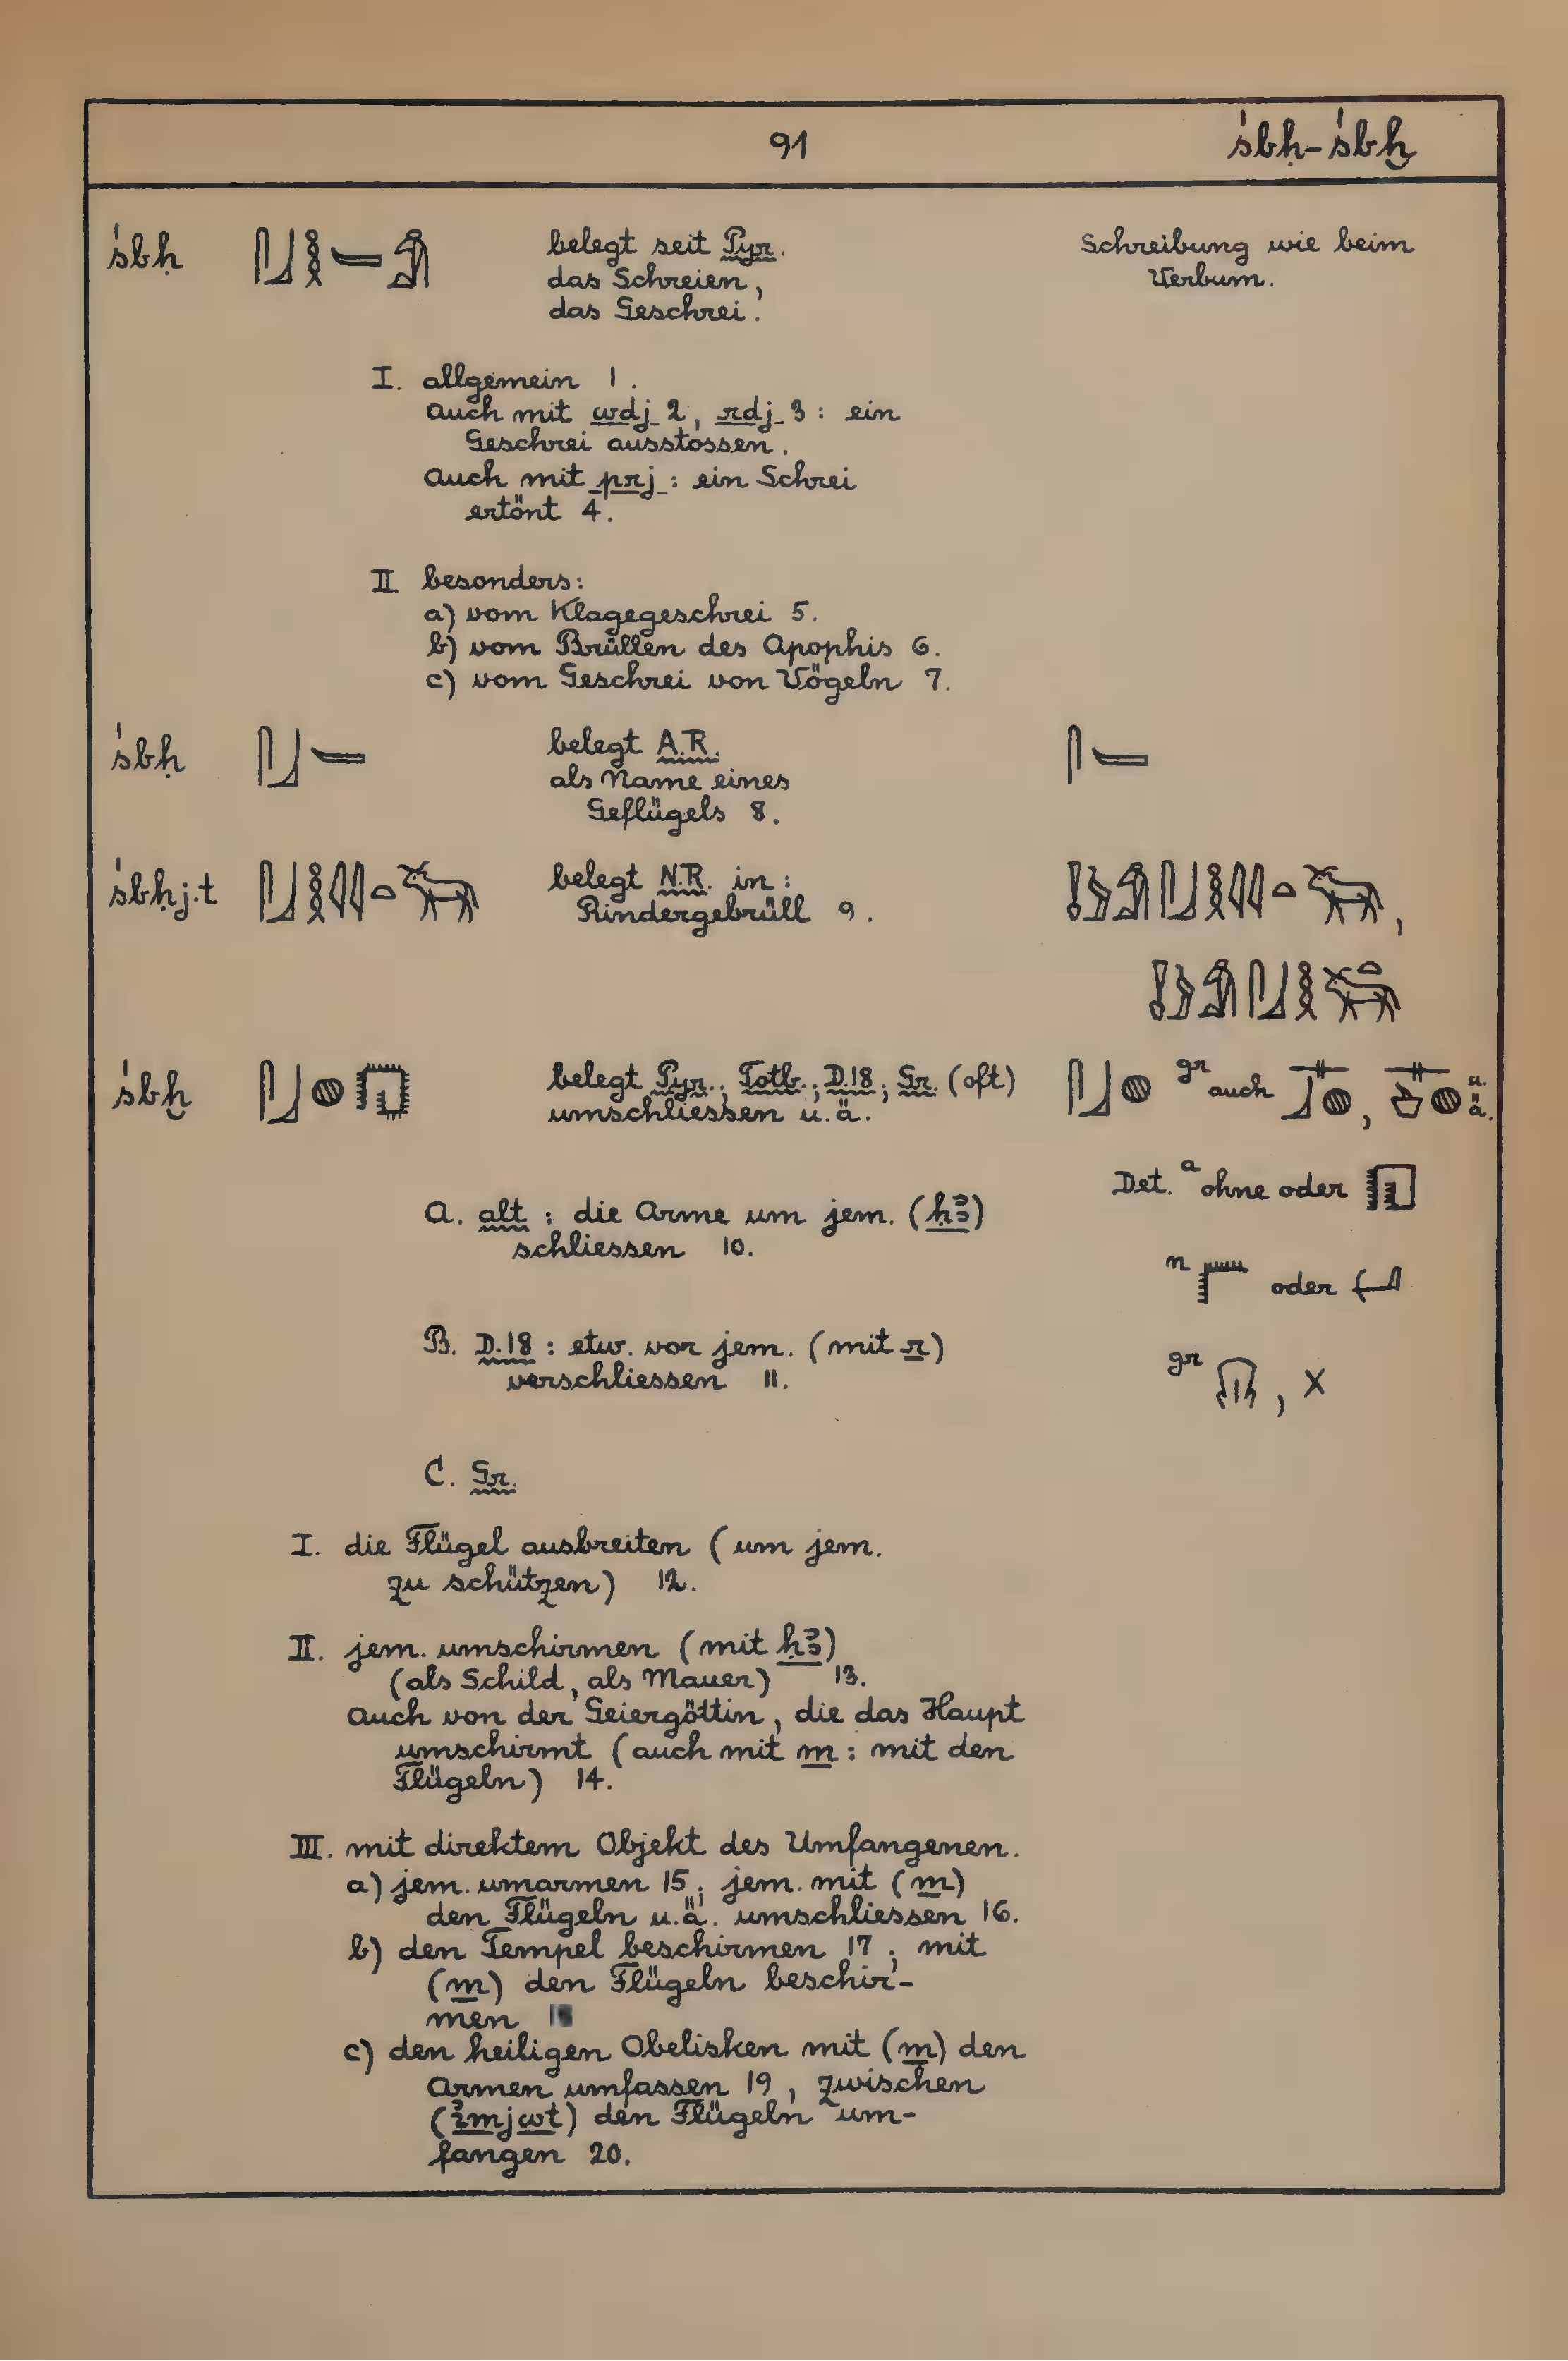 91 śbḥ-śbḫ
śbḥ belegt seit Pyr. Schreibung wie beim
das Schreien, Verbum.
das Geschrei.
I. allgemein 1.
Auch mit wdj 2, rdj 3: ein
Geschrei ausstossen.
Auch mit prj: ein Schrei
ertönt 4.
II besonders:
a) vom Klagegeschrei 5.
b) vom Brüllen des Apophis 6.
c) vom Geschrei von Vögeln 7.
śbḥ belegt A.R.
als Name eines
Geflügels 8.
śbḥj.t belegt N.R. in:
Rindergebrüll 9.
śbḫ belegt Pyr.; Totb.; D.18; Gr. (oft) gr auch , u.
umschliessen u.ä. ä.
Det. a ohne oder
A. alt: die Arme um jem. (ḥꜣ)
schliessen 10.
n oder
B. D.18: etw. vor jem. (mit r)
verschliessen 11.
gr , X
C. Gr.
I. die Flügel ausbreiten (um jem.
zu schützen) 12.
II. jem. umschirmen (mit ḥꜣ)
(als Schild, als Mauer) 13.
Auch von der Geiergöttin, die das Haupt
umschirmt (auch mit m: mit den
Flügeln) 14.
III. mit direktem Objekt des Umfangenen.
a) jem. umarmen 15; jem. mit (m)
den Flügeln u.ä. umschliessen 16.
b) den Tempel beschirmen 17; mit
(m) den Flügeln beschir-
men
c) den heiligen Obelisken mit (m) den
Armen umfassen 19, zwischen
(ꞽmjwt) den Flügeln um-
fangen 20.